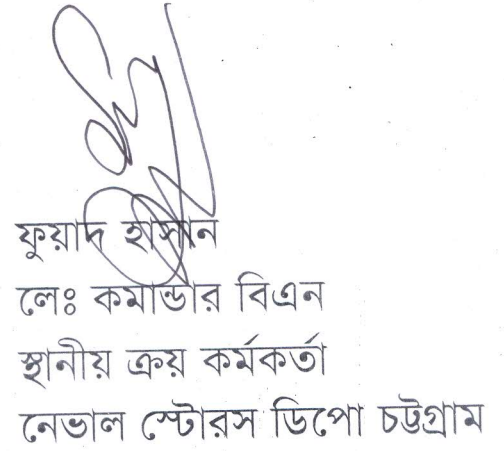 ফুয়াদ হাসান
লেঃ কমান্ডার বিএন
স্থানীয় ক্রয় কর্মকর্তা
নেভাল স্টোরস ডিপো চট্টগ্রাম